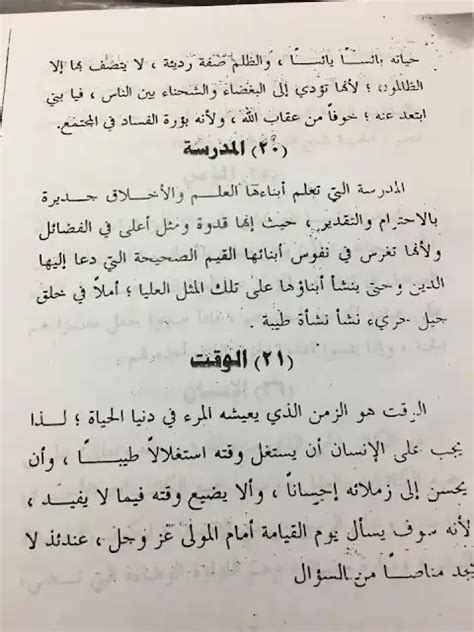 حياته بائسًا يائسًا ، والظلم صفة رديئة ، لا يتصف بها إلا
الظالمون ؛ لأنها تؤدي إلى البغضاء والشحناء بين الناس ، فيا بني
ابتعد عنه ؛ خوفًا من عقاب الله ، ولأنه بؤرة الفساد في المجتمع.
(٢٠) المدرسة
المدرسة التي تعلم أبناءها العلم والأخلاق جديرة
بالاحترام والتقدير ، حيث إنها قدوة ومثل أعلى في الفضائل
ولأنها تغرس في نفوس أبنائها القيم الصحيحة التي دعا إليها
الدين وحتى ينشأ أبناؤها على تلك المثل العليا ؛ أملاً في خلق
جيل جريء نشأ نشأة طيبة
(٢١) الوقت
الوقت هو الزمن الذي يعيشه المرء في دنيا الحياة ؛ لذا
يجب على الإنسان أن يستغل وقته استغلالاً طيبًا ، وأن
يحسن إلى زملائه إحسانًا ، وألا يضيع وقته فيما لا يفيد ،
لأنه سوف يسأل يوم القيامة أمام المولى عز وجل ، عندئذ لا
يجد مناصًا من السؤال